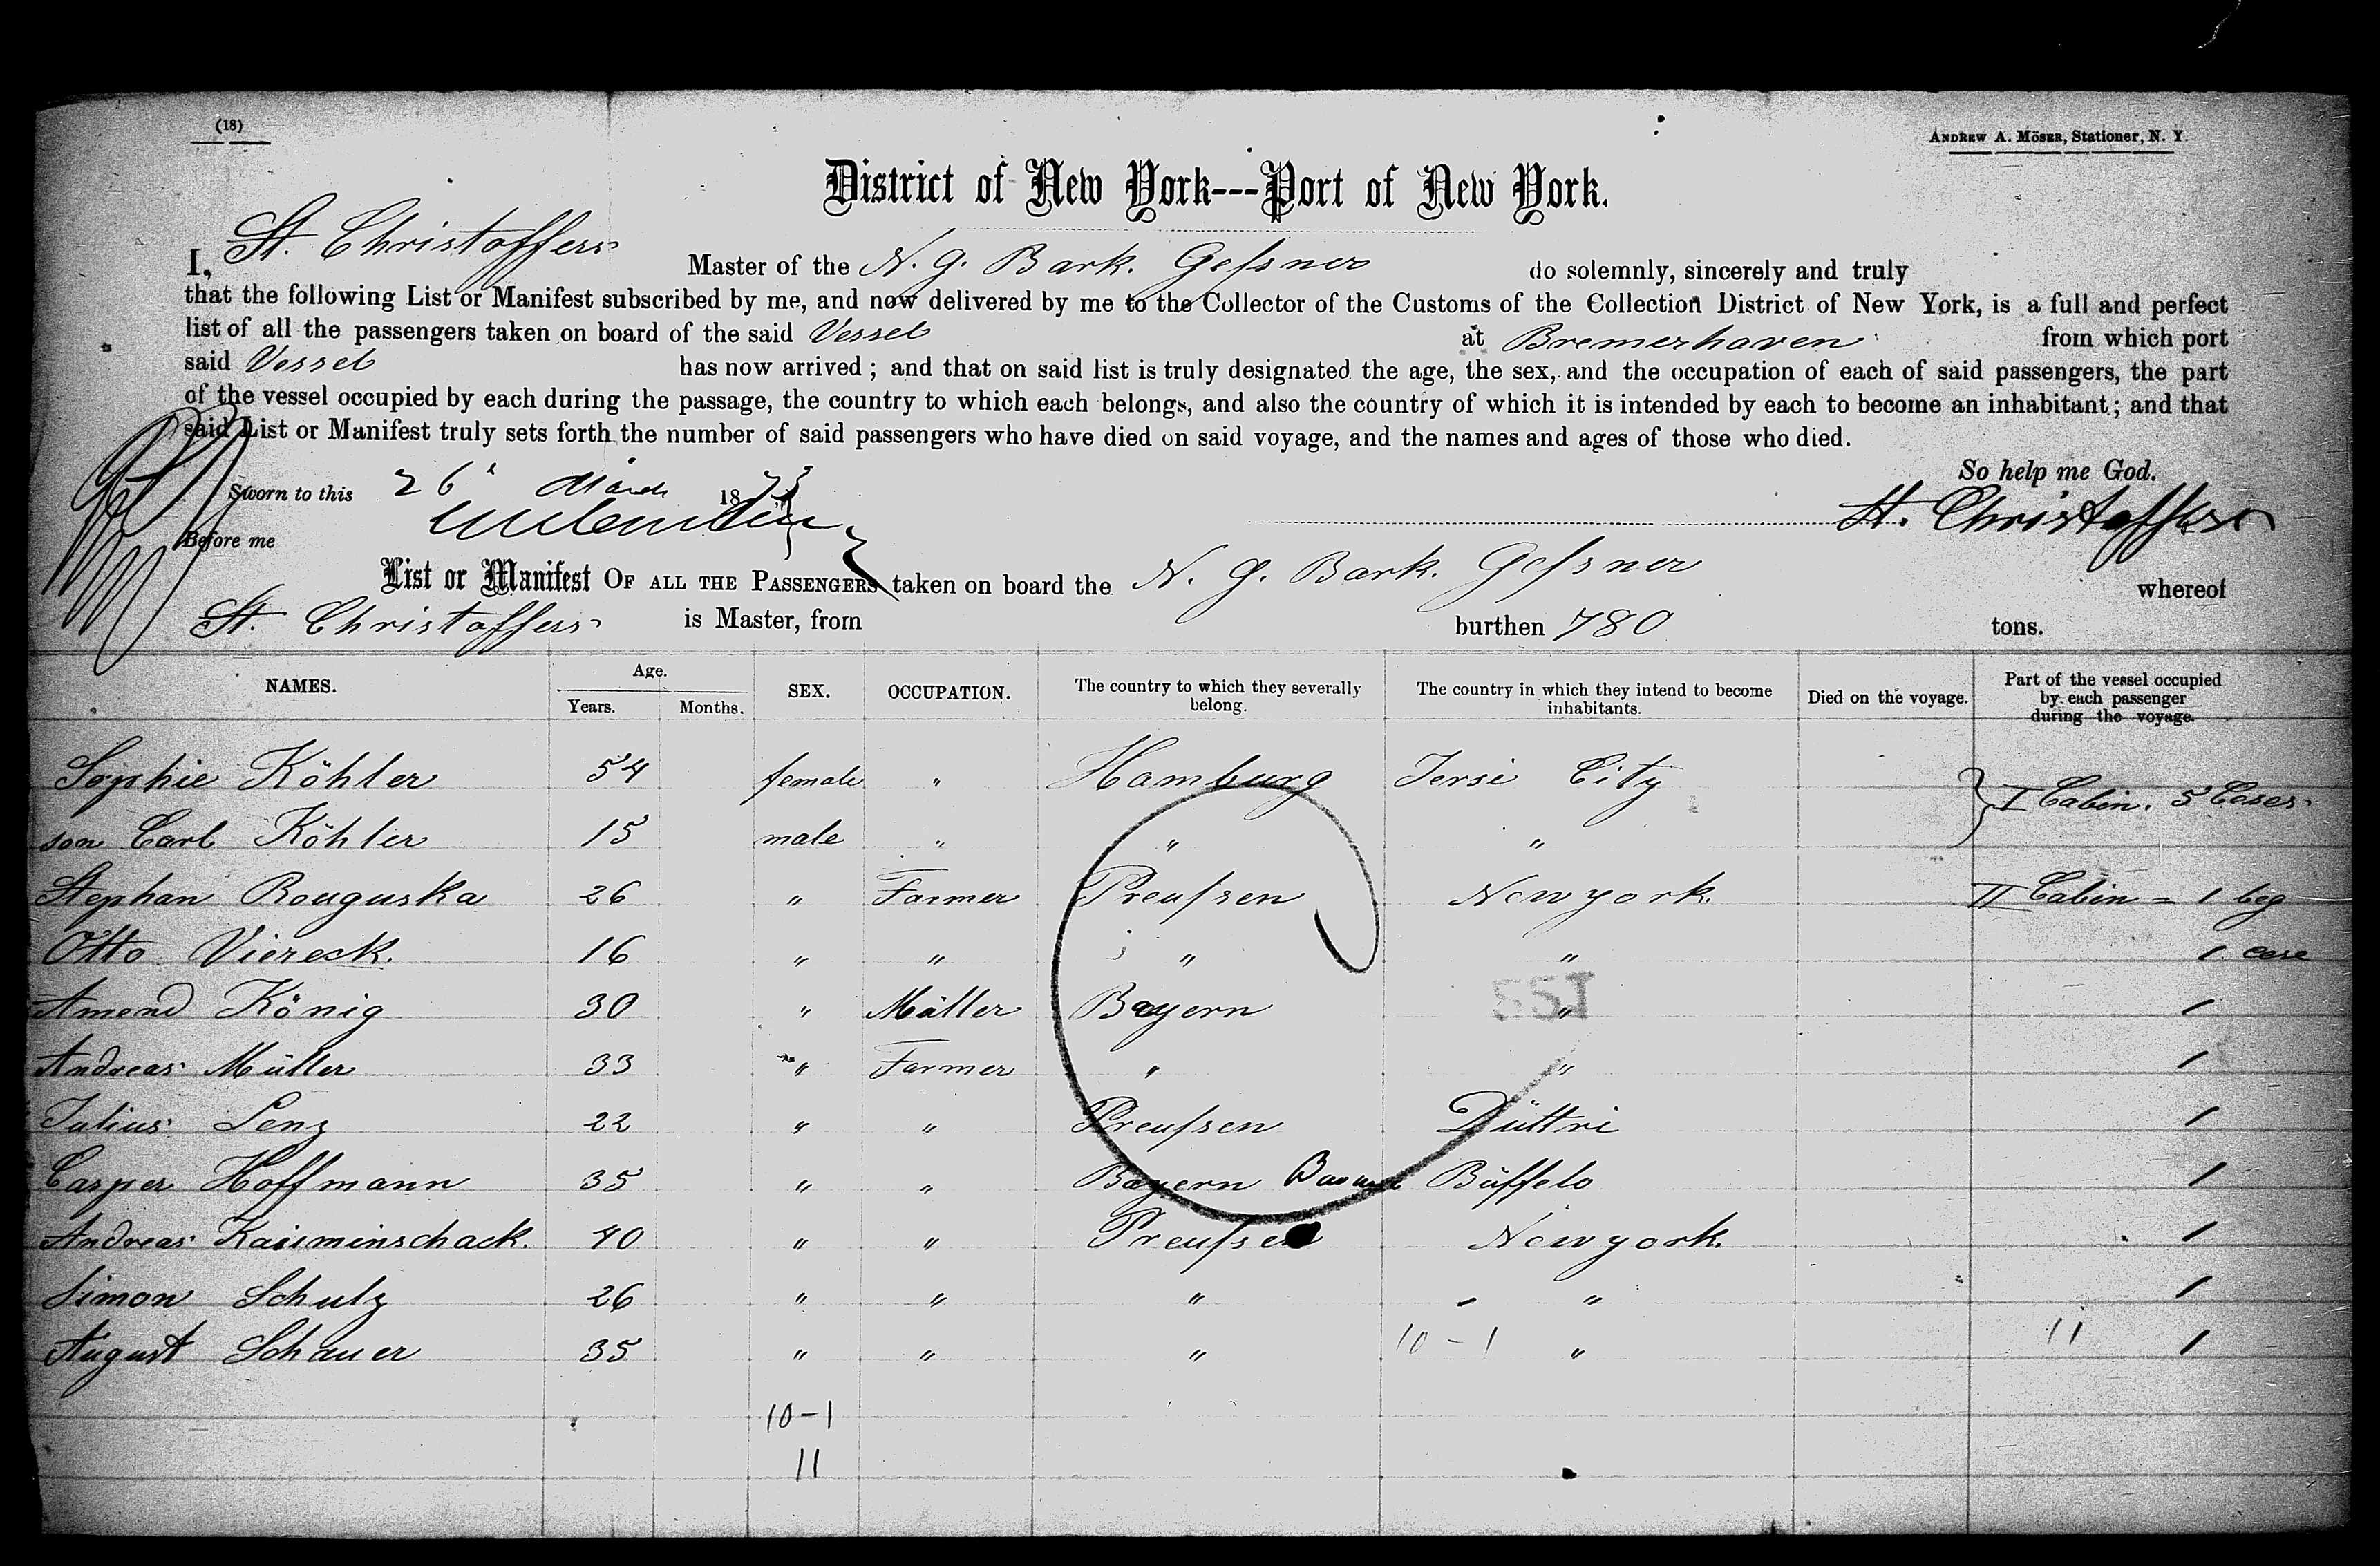 (18)
ANDREW A. MÖSER, Stationer, N. Y.
District of New York---Port of New York.
I, St. Christoffers Master of the N. G. Bark. Geſsner do solemnly, sincerely and truly
that the following List or Manifest subscribed by me, and now delivered by me to the Collector of the Customs of the Collection District of New York, is a full and perfect
list of all the passengers taken on board of the said Vessel at Bremerhaven from which port
said Vessel has now arrived; and that on said list is truly designated the age, the sex, and the occupation of each of said passengers, the part
of the vessel occupied by each during the passage, the country to which each belongs, and also the country of which it is intended by each to become an inhabitant; and that
said List or Manifest truly sets forth the number of said passengers who have died on said voyage, and the names and ages of those who died.
So help me God.
Sworn to this 26 March 1873
St. Christoffers
Before me
List or Manifest OF ALL THE PASSENGERS taken on board the N. G. Bark. Geſsner whereof
St. Christoffers is Master, from burthen 780 tons.
NAMES. Age. Years. Months. SEX. OCCUPATION. The country to which they severally belong. The country in which they intend to become inhabitants. Died on the voyage. Part of the vessel occupied by each passenger during the voyage.
Sophie Köhler 54 female " Hamburg Jersi City I Cabin. 5 Ceses
son Carl Köhler 15 male " " "
Stephan Rouguska 26 " Farmer Preuſsen Newyork II Cabin = 1 beg
Otto Viereck. 16 " " " " 1 cese
Amend König 30 " Müller Bayern " 1
SSI
Andreas Müller 33 " Farmer " " 1
Julius Lenz 22 " " Preuſsen Düttri 1
Casper Hoffmann 35 " " Bayern Büffelo 1
Andreas Kaisminschack. 40 " " Preuſsen Newyork. 1
Simon Schulz 26 " " " " 1
August Schauer 35 " " " 10-1 " 11 1
10-1
11